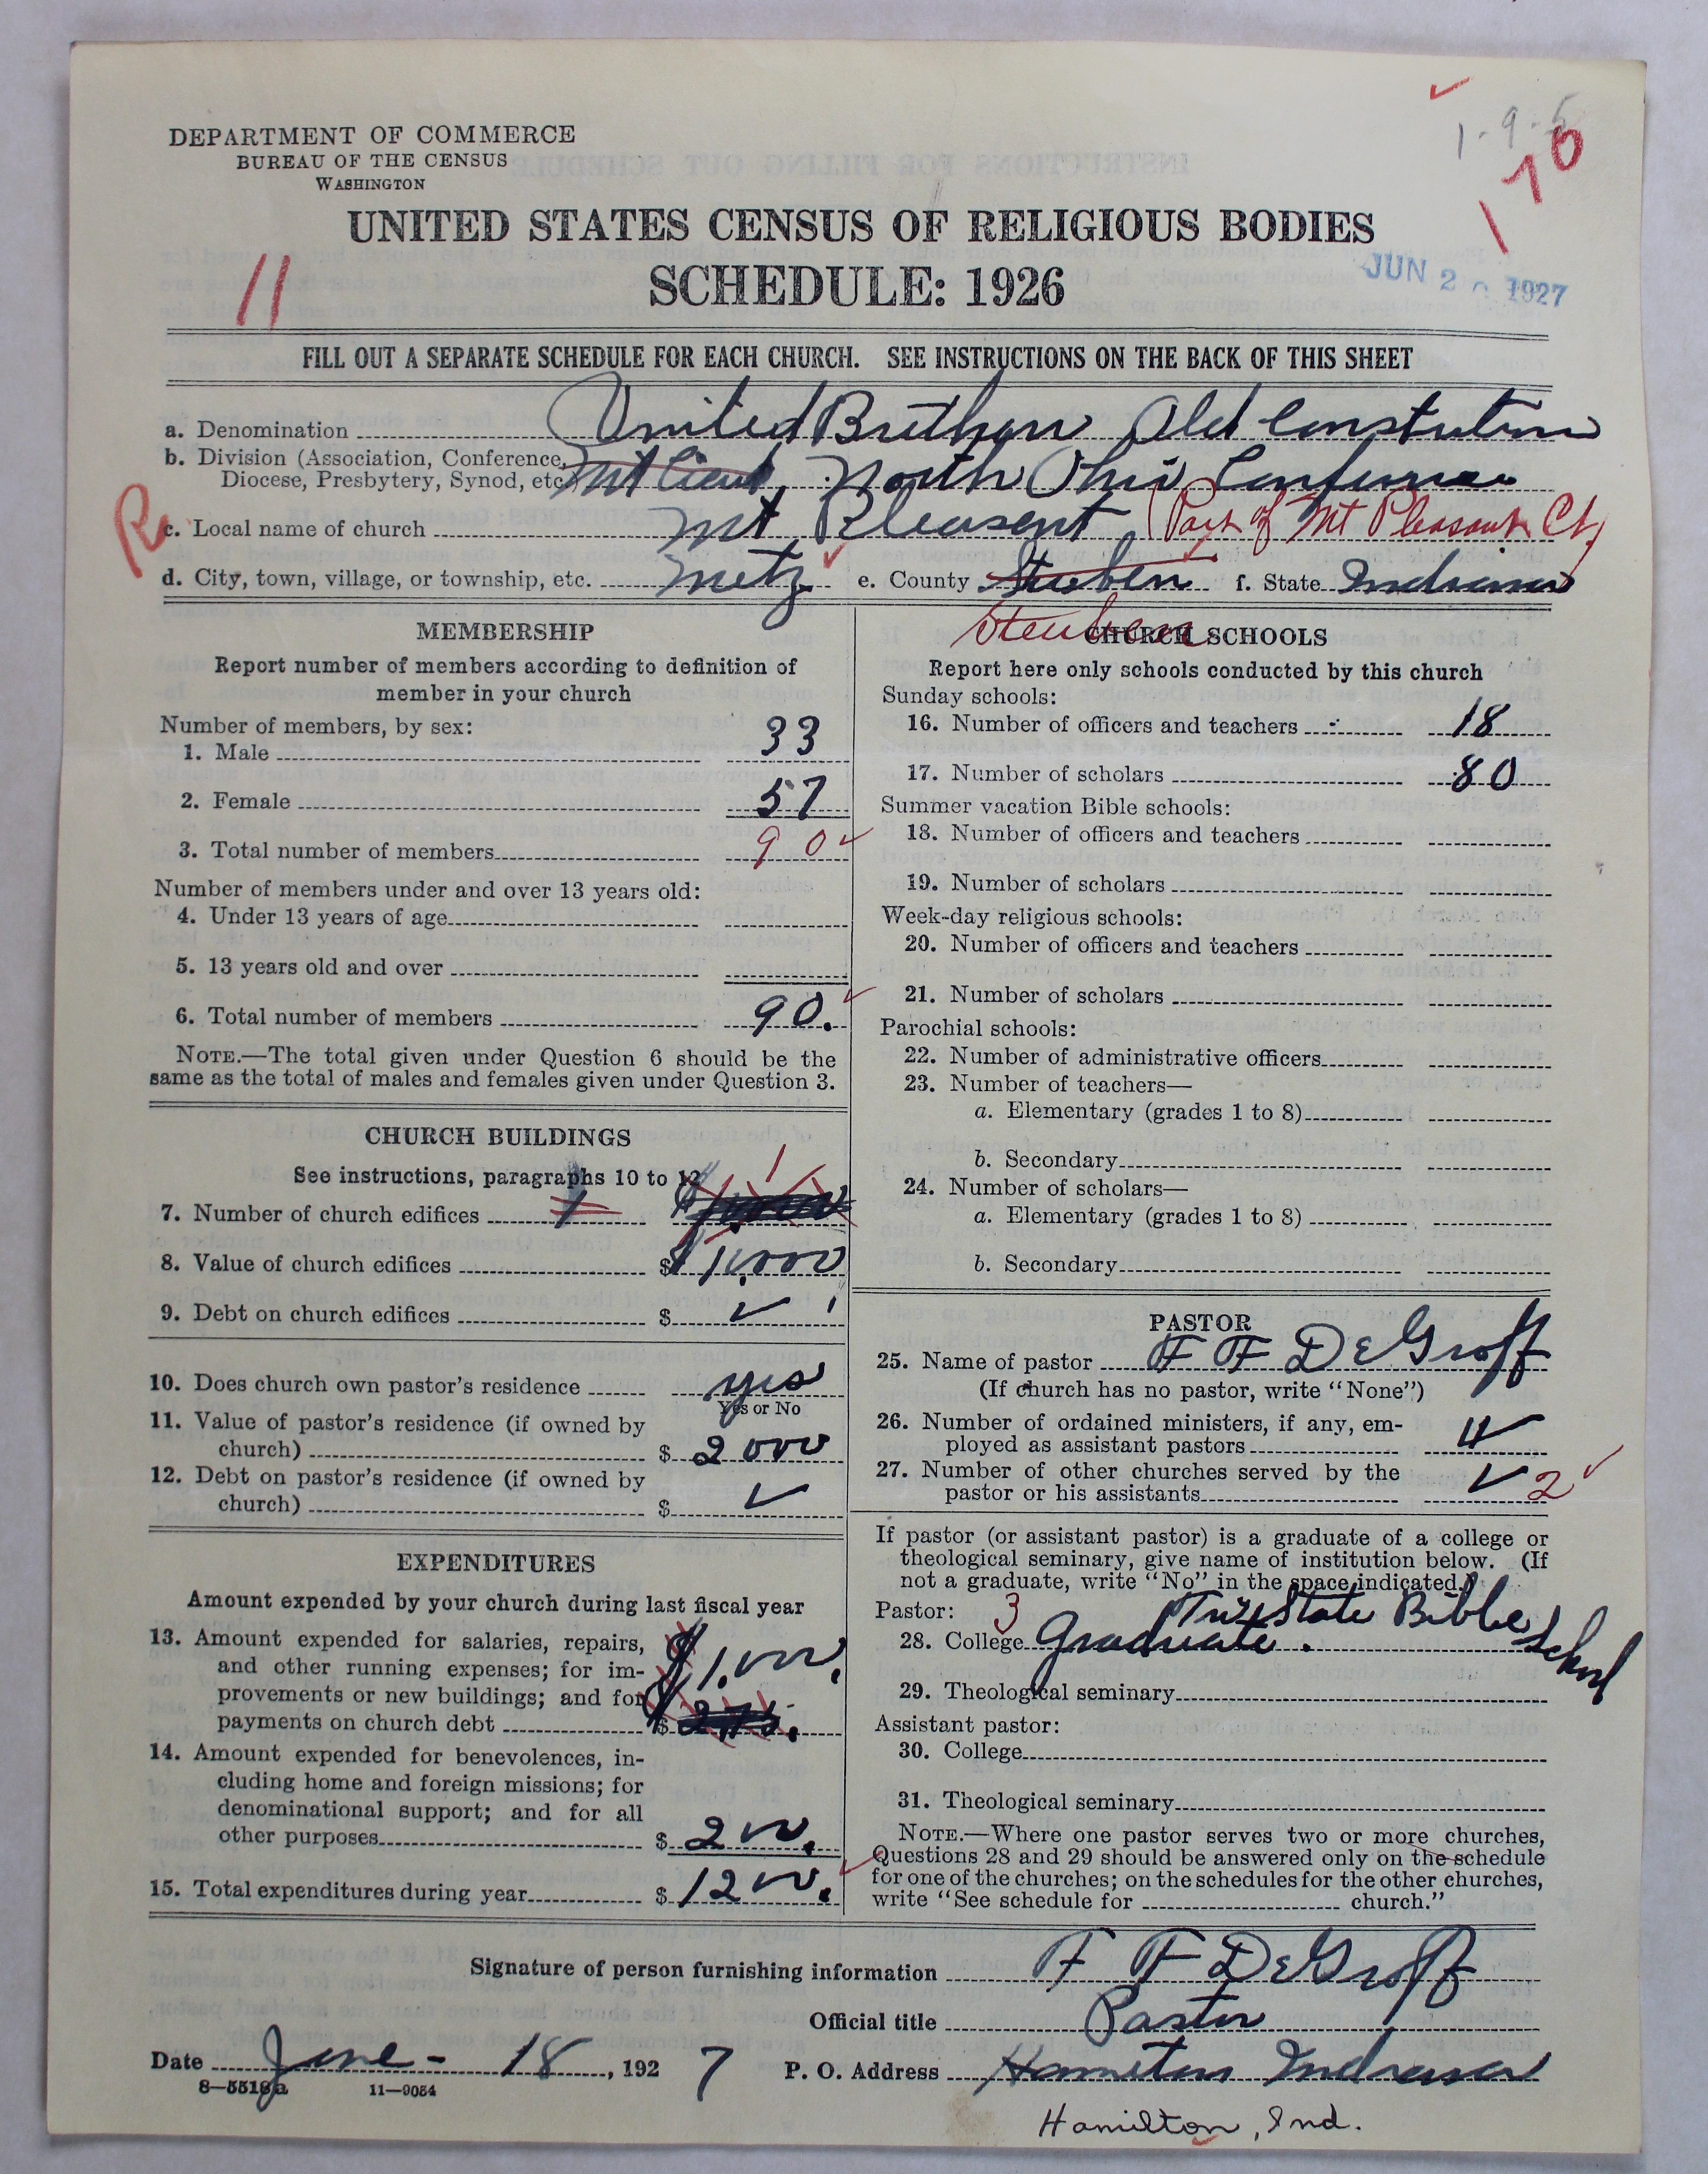 1-9-5
170
DEPARTMENT OF COMMERCE
BUREAU OF THE CENSUS
WASHINGTON
UNITED STATES CENSUS OF RELIGIOUS BODIES
SCHEDULE: 1926
11
JUN 20 1927
FILL OUT A SEPARATE SCHEDULE FOR EACH CHURCH. SEE INSTRUCTIONS ON THE BACK OF THIS SHEET
a. Denomination United Brethren Old Constitution
b. Division (Association, Conference,
Diocese, Presbytery, Synod, etc.) North Ohio Conference
R
c. Local name of church Mt Pleasent (Part of Mt Pleasant Ct)
d. City, town, village, or township, etc. Metz e. County Stuben f. State Indiana
Steuben
MEMBERSHIP
Report number of members according to definition of
member in your church
Number of members, by sex:
1. Male 33
2. Female 57
3. Total number of members 90
Number of members under and over 13 years old:
4. Under 13 years of age
5. 13 years old and over
6. Total number of members 90.
NOTE.—The total given under Question 6 should be the
same as the total of males and females given under Question 3.
CHURCH BUILDINGS
See instructions, paragraphs 10 to 12
7. Number of church edifices 1 1
8. Value of church edifices $ 11,000
9. Debt on church edifices $ ✓
10. Does church own pastor's residence yes
Yes or No
11. Value of pastor's residence (if owned by
church) $ 2000
12. Debt on pastor's residence (if owned by
church) $ ✓
EXPENDITURES
Amount expended by your church during last fiscal year
13. Amount expended for salaries, repairs,
and other running expenses; for im-
provements or new buildings; and for
payments on church debt $ 1,000.
$ 275.
14. Amount expended for benevolences, in-
cluding home and foreign missions; for
denominational support; and for all
other purposes $ 200.
15. Total expenditures during year $ 1200.
CHURCH SCHOOLS
Report here only schools conducted by this church
Sunday schools:
16. Number of officers and teachers 18
17. Number of scholars 80
Summer vacation Bible schools:
18. Number of officers and teachers
19. Number of scholars
Week-day religious schools:
20. Number of officers and teachers
21. Number of scholars
Parochial schools:
22. Number of administrative officers
23. Number of teachers—
a. Elementary (grades 1 to 8)
b. Secondary
24. Number of scholars—
a. Elementary (grades 1 to 8)
b. Secondary
PASTOR
25. Name of pastor F F DeGroff
(If church has no pastor, write "None")
26. Number of ordained ministers, if any, em-
ployed as assistant pastors
27. Number of other churches served by the
pastor or his assistants ✓ 2 ✓
If pastor (or assistant pastor) is a graduate of a college or
theological seminary, give name of institution below. (If
not a graduate, write "No" in the space indicated.)
Pastor: 3 Tri State Bible School
28. College Graduate.
29. Theological seminary
Assistant pastor:
30. College
31. Theological seminary
NOTE.—Where one pastor serves two or more churches,
Questions 28 and 29 should be answered only on the schedule
for one of the churches; on the schedules for the other churches,
write "See schedule for church."
Signature of person furnishing information F F DeGroff
Official title Pastor
Date June - 18, 1927 P. O. Address Hamilton Indiana
8—5518a 11—9054
Hamilton, Ind.